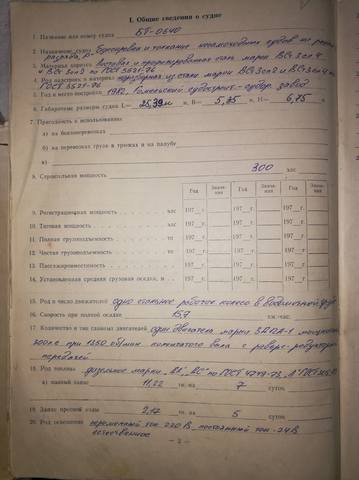 I. Общие сведения о судне
1. Название или номер судна БТ-0640
2. Назначение судна Буксировка и толкание несамоходных судов на реках
разряда „Р“
3. Материал корпуса листовая и профилированная сталь марок ВСт3сп4
и ВСт3сп2 по ГОСТ 5521-76
4. Род надстроек и материал из стали марок ВСт3сп2 и ВСт3сп4 по
ГОСТ 5521-76
5. Год и место постройки 1982,
6. Габаритные размеры судна L— 25,39 м, B— 5,35 м, H— 6,75 м
7. Пригодность к использованию:
а) на бихтеровочных
б) на перевозках груза в трюмах и на палубе
в)
8. Строительная мощность 300 элс
Год Значение Год Значение Год Значение
9. Регистрационная мощность элс 197 г. 197 г. 197 г.
10. Тяговая мощность элс 197 г. 197 г. 197 г.
11. Полная грузоподъемность тн 197 г. 197 г. 197 г.
12. Чистая грузоподъемность тн 197 г. 197 г. 197 г.
13. Пассажировместимость 197 г. 197 г. 197 г.
14. Установленная средняя грузовая осадка, м 197 г. 197 г. 197 г.
15. Род и число движителей одно стальное рабочее колесо в водометной трубе
16. Скорость при полной осадке 15,7 км/час.
17. Количество и тип главных двигателей один двигатель марки 3Д12А-1 мощностью
300 лс при 1350 об/мин коленчатого вала с реверс-редукторной
передачей
18. Род топлива дизельное марки
а) полный запас 11,22 тн. на 7 суток
19. Запас пресной воды 2,17 тн. на 5 суток
20. Род освещения переменный ток 220 В, постоянный ток - 24 В
естественное
— 2 —